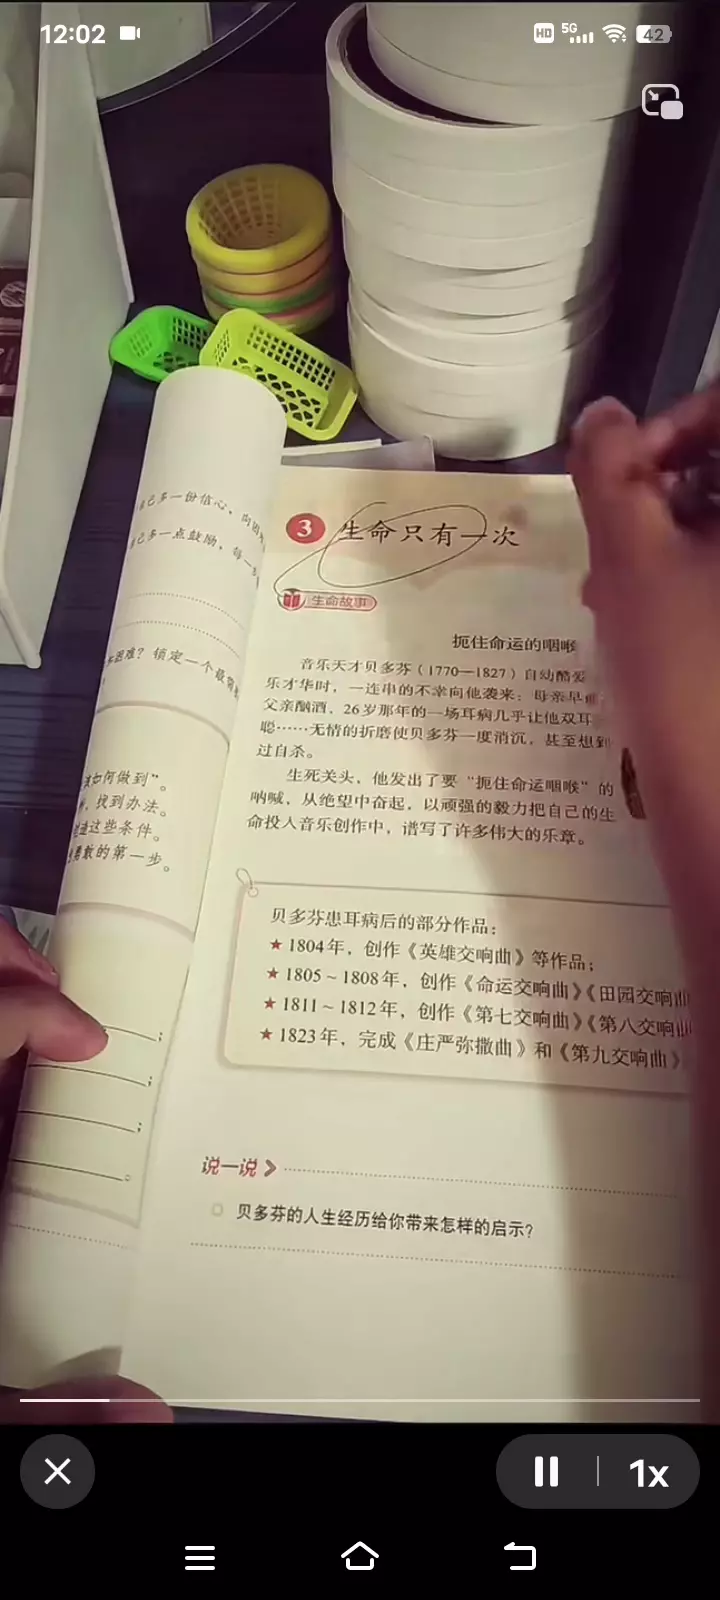 12:02
HD 5G 42
自己多一份信心，向困
自己多一点鼓励，每一
困难？锁定一个最
该如何做到”。
，找到办法。
造这些条件。
勇敢的第一步。
3 生命只有一次
生命故事
扼住命运的咽喉
音乐天才贝多芬（1770—1827）自幼酷爱
乐才华时，一连串的不幸向他袭来：母亲早
父亲酗酒，26岁那年的一场耳病几乎让他双耳
聪……无情的折磨使贝多芬一度消沉，甚至想到
过自杀。
生死关头，他发出了要“扼住命运咽喉”的
呐喊，从绝望中奋起，以顽强的毅力把自己的生
命投入音乐创作中，谱写了许多伟大的乐章。
贝多芬患耳病后的部分作品：
★1804年，创作《英雄交响曲》等作品；
★1805~1808年，创作《命运交响曲》《田园交响曲
★1811~1812年，创作《第七交响曲》《第八交响曲
★1823年，完成《庄严弥撒曲》和《第九交响曲》
；
；
；
。
说一说
贝多芬的人生经历给你带来怎样的启示？
1x